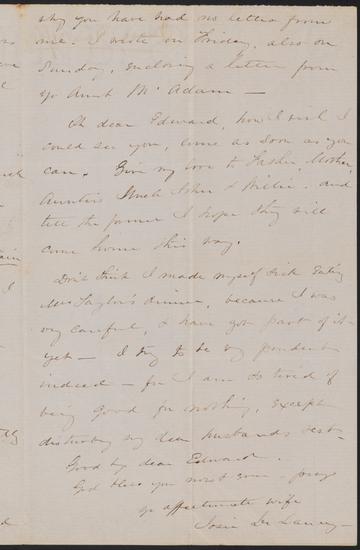 why you have had no letter from
me. I wrote on Friday, also on
Sunday, enclosing a letter from
yr Aunt Mc Adam —
Oh dear Edward, how I wish I
could see you, come as soon as you
can. Give my love to Father, Mother,
Aunties Uncle John & Millie. and
tell the former I hope they will
come home this way.
Don't think I made myself sick eating
Mrs Taylor's dinner, because I was
very careful, & have got part of it
yet — I try to be very prudent
indeed — for I am so tired of
being good for nothing, except
disturbing my dear husband's rest —
Good by dear Edward.
God bless you most ever prays
yr affectionate wife
Josie De Lancey —